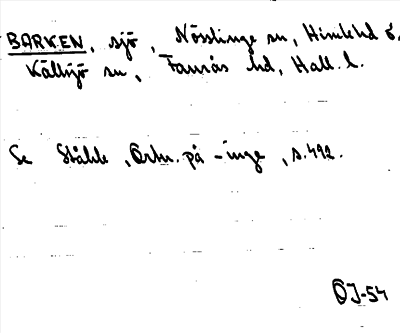 BARKEN, sjö, Nösslinge sn, Himle hd o.
Källsjö sn, Faurås hd, Hall. l.
Se Ståhle, Ortn. på -inge, s. 492.
ÖJ-54